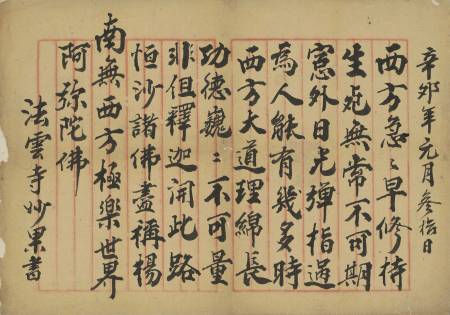 辛卯年元月叁拾日
西方急〻早修持
生死無常不可期
窻外日光彈指過
爲人能有幾多時
西方大道理綿長
功德巍〻不可量
非但釋迦開此路
恒沙諸佛盡稱揚
南無西方極樂世界
阿弥陀佛
法雲寺妙果書